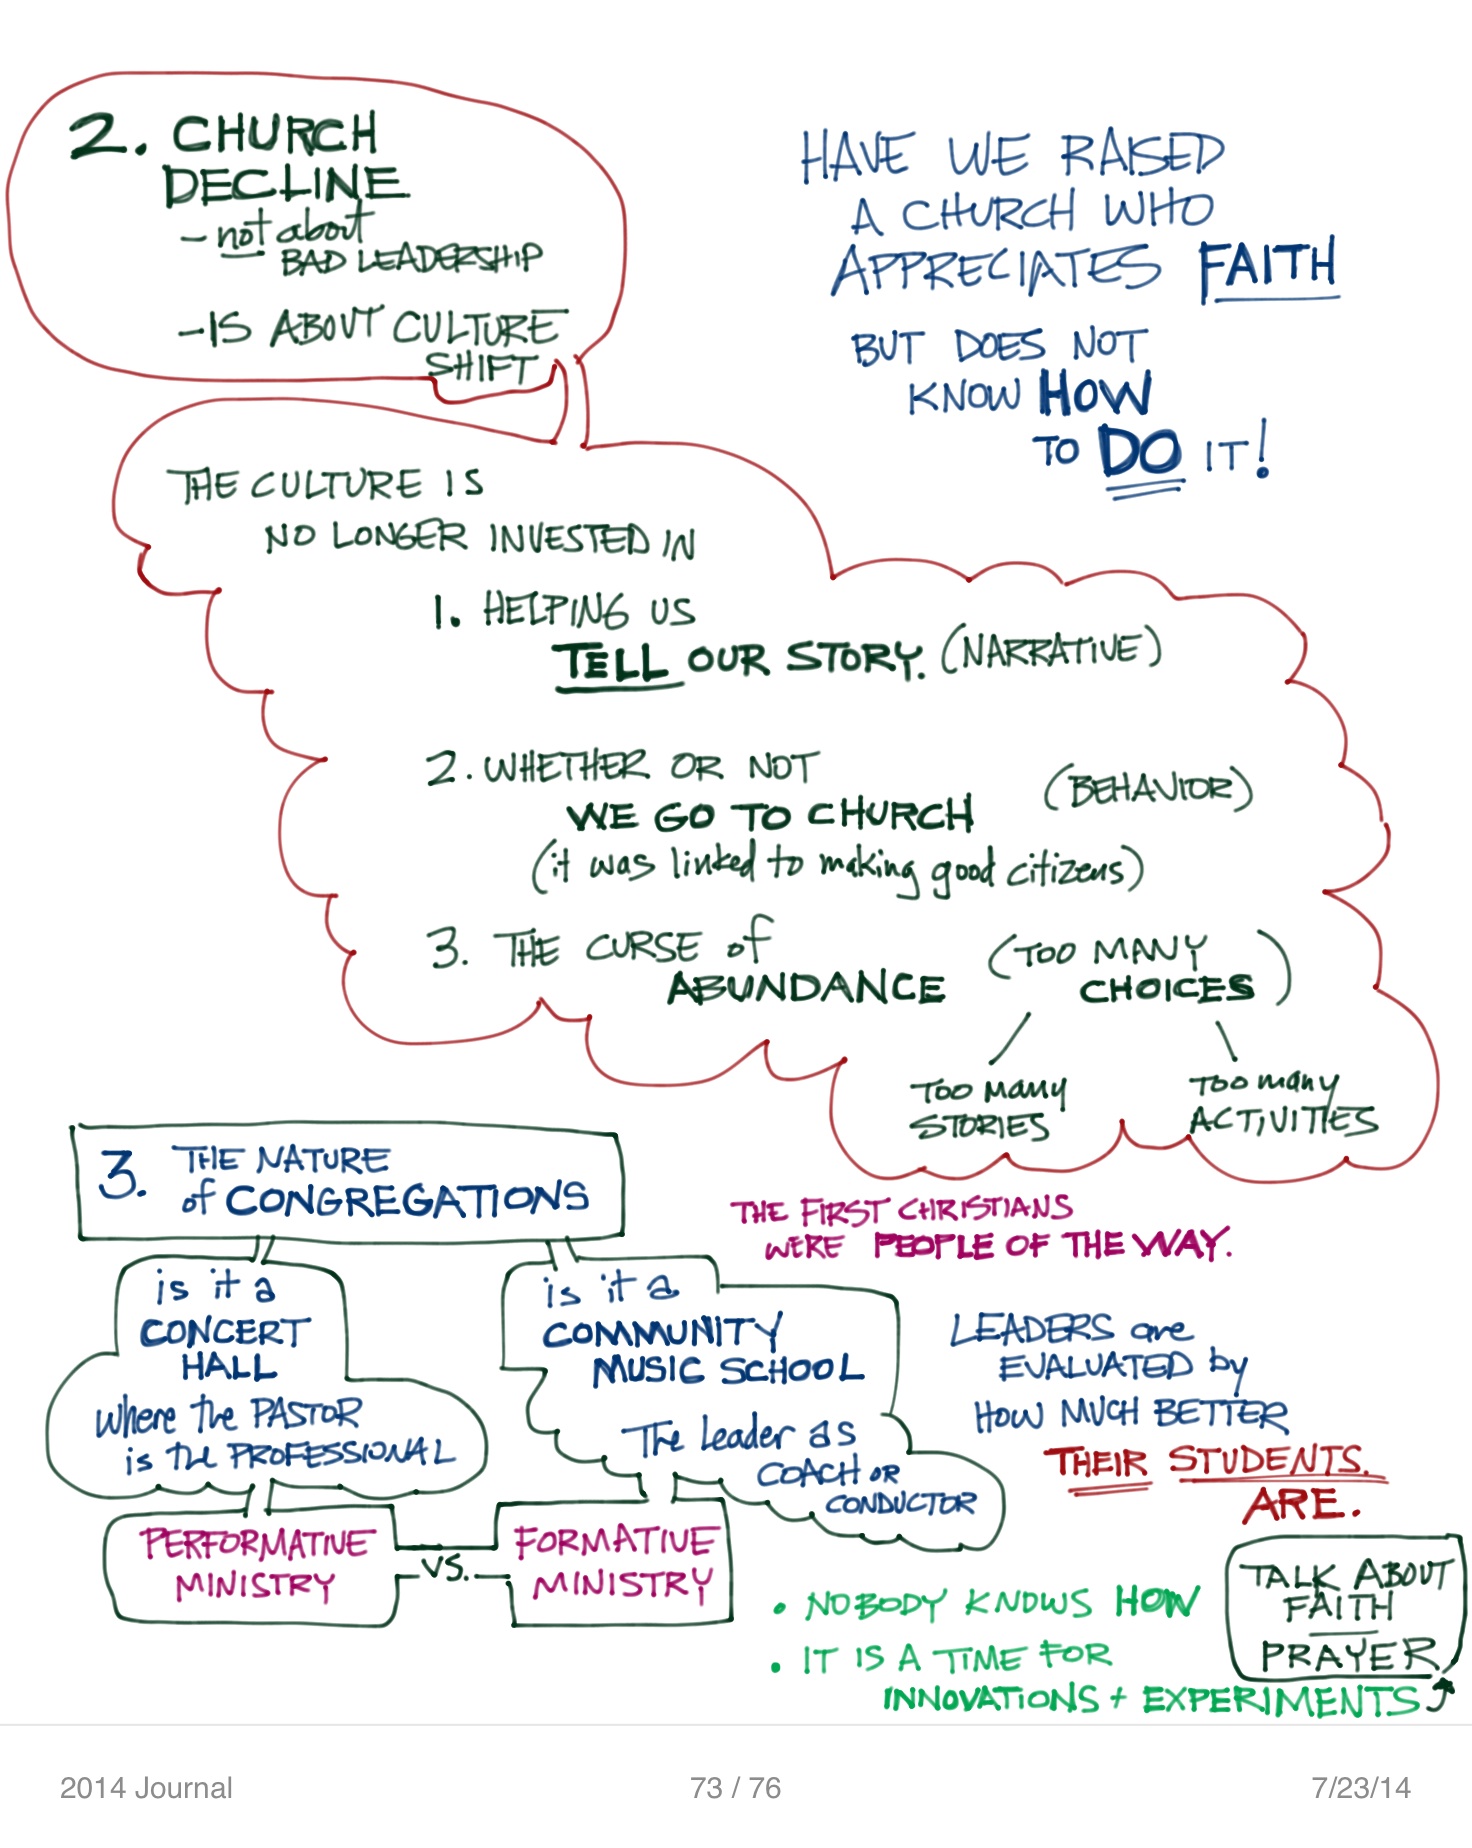 2. CHURCH
DECLINE
- not about
BAD LEADERSHIP
- IS ABOUT CULTURE
SHIFT
HAVE WE RAISED
A CHURCH WHO
APPRECIATES FAITH
BUT DOES NOT
KNOW HOW
TO DO IT!
THE CULTURE IS
NO LONGER INVESTED IN
1. HELPING US
TELL OUR STORY. (NARRATIVE)
2. WHETHER OR NOT
WE GO TO CHURCH (BEHAVIOR)
(it was linked to making good citizens)
3. THE CURSE of
ABUNDANCE
(TOO MANY
CHOICES)
TOO MANY
STORIES
TOO many
ACTIVITIES
3. THE NATURE
of CONGREGATIONS
is it a
CONCERT
HALL
where the PASTOR
is the PROFESSIONAL
is it a
COMMUNITY
MUSIC SCHOOL
The Leader as
COACH OR
CONDUCTOR
PERFORMATIVE
MINISTRY
VS.
FORMATIVE
MINISTRY
THE FIRST CHRISTIANS
WERE PEOPLE OF THE WAY.
LEADERS are
EVALUATED by
HOW MUCH BETTER
THEIR STUDENTS
ARE.
• NOBODY KNOWS HOW
• IT IS A TIME FOR
INNOVATIONS + EXPERIMENTS
TALK ABOUT
FAITH
PRAYER
2014 Journal
73 / 76
7/23/14